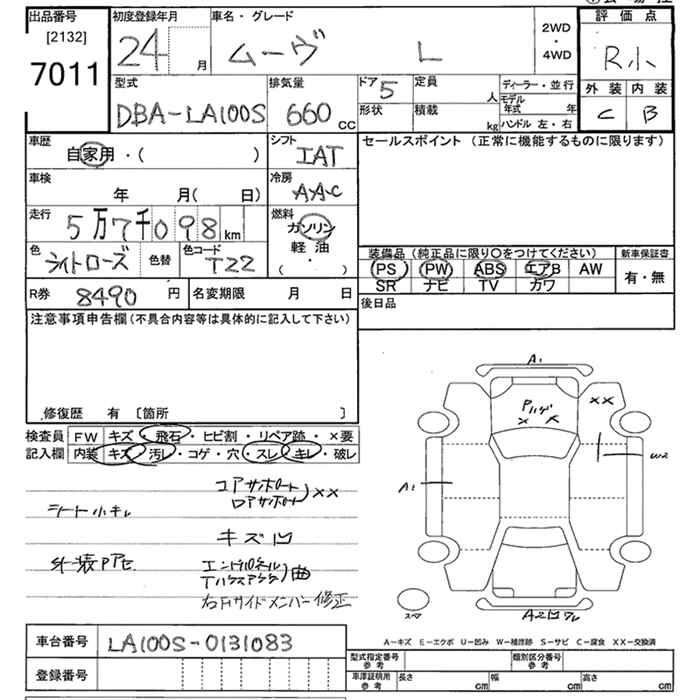 出品番号 初度登録年月 車名・グレード 評価点
[2132]
7011
24 月 ムーヴ L
2WD
・
4WD
R小
外装 内装
C B
型式 排気量 ドア 5 定員 人 ディーラー・並行
DBA-LA100S 660 CC
形状 積載 kg
モデル年式 年
ハンドル 左・右
車歴 シフト セールスポイント (正常に機能するものに限ります)
自家用・( ) IAT
車検 冷房
年 月( 日) AAC
走行 燃料
5万7千098 km ガソリン
軽油
( ・ )
色 色替 色コード
ライトローズ T22
装備品 (純正品に限り〇をつけてください) 新車保証書
PS PW ABS エアB AW 有・無
SR ナビ TV カワ
R券 8490 円 名変期限 月 日
後日品
注意事項申告欄 (不具合内容等は具体的に記入して下さい)
修復歴 有 〔箇所 〕
検査員 FW キズ・飛石・ヒビ割・リペア跡・×要
記入欄 内装 キズ・汚レ・コゲ・穴・スレ・キレ・破レ
シート小キレ
コアサポート
ロアサポート ××
キズ凹
外装Pアセ
曲
右Fサイドメンバー修正
A1
Pハゲ
× ×
××
A1
W2
スペア
A2凹ワレ
A-キズ E-エクボ U-凹み W-補修跡 S-サビ C-腐食 XX-交換済
車台番号 LA100S-0131083
登録番号
型式指定番号 参考 類別区分番号 参考
車庫証明用 参考 長さ cm 幅 cm 高さ cm